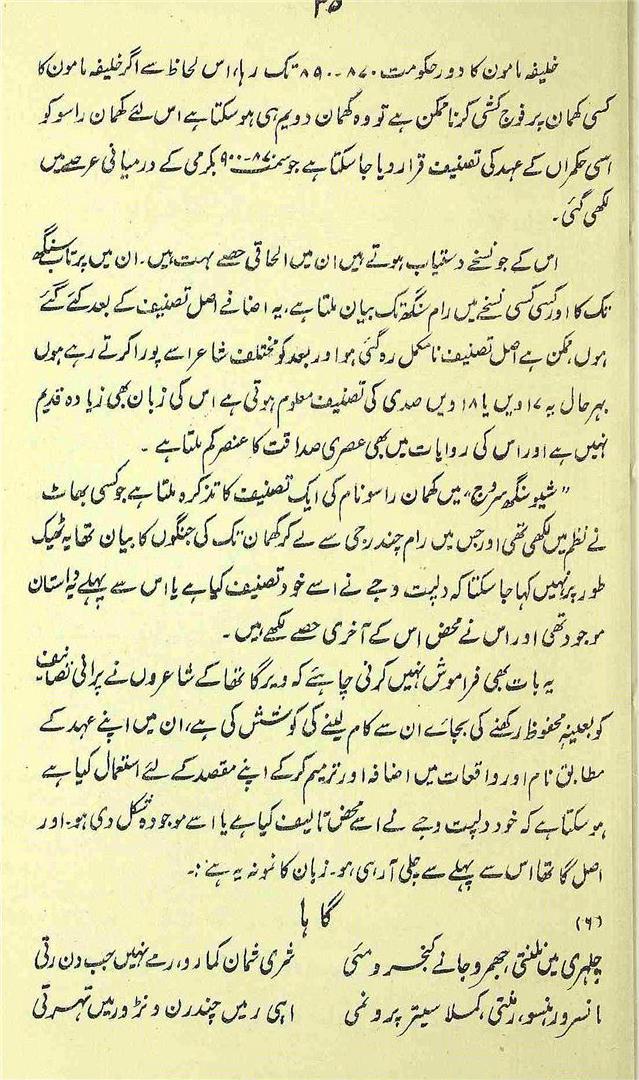 ۳۵
خلیفہ مامون کا دور حکومت ۸۷۰-۸۹۰ تک رہا، اس لحاظ سے اگر خلیفہ مامون کا
کسی کھمان پر فوج کشی کرنا ممکن ہے تو وہ گھمان دویم ہی ہو سکتا ہے اس لئے کھمان راسو کو
اسی حکمراں کے عہد کی تصنیف قرار دیا جا سکتا ہے جو سمت ۸۷۰-۹۰۰ بکرمی کے درمیانی عرصے میں
لکھی گئی۔
اس کے جو نسخے دستیاب ہوتے ہیں ان میں الحاقی حصے بہت ہیں۔ ان میں پرتاب سنگھ
تک کا اور کسی کسی نسخے میں رام سنگھ تک بیان ملتا ہے، یہ اضافے اصل تصنیف کے بعد کئے گئے
ہوں، ممکن ہے اصل تصنیف نامکمل رہ گئی ہو اور بعد کو مختلف شاعر اسے پورا کرتے رہے ہوں
بہرحال یہ ۱۷ ویں یا ۱۸ ویں صدی کی تصنیف معلوم ہوتی ہے اس کی زبان بھی زیادہ قدیم
نہیں ہے اور اس کی روایات میں بھی عصری صداقت کا عنصر کم ملتا ہے۔
"شیو سنگھ سروج" میں کھمان راسو نام کی ایک تصنیف کا تذکرہ ملتا ہے جو کسی بھاٹ
نے نظم میں لکھی تھی اور جس میں رام چندر جی سے لے کر گھمان تک کی جنگوں کا بیان تھا یہ ٹھیک
طور پر نہیں کہا جا سکتا کہ دلپت وجے نے اسے خود تصنیف کیا ہے یا اس سے پہلے یہ داستان
موجود تھی اور اس نے محض اس کے آخری حصے لکھے ہیں۔
یہ بات بھی فراموش نہیں کرنی چاہئے کہ ویرگاتھا کے شاعروں نے پرانی تصانیف
کو بعینہٖ محفوظ رکھنے کی بجائے ان سے کام لینے کی کوشش کی ہے، ان میں اپنے عہد کے
مطابق نام اور واقعات میں اضافہ اور ترمیم کر کے اپنے مقصد کے لئے استعمال کیا ہے
ہو سکتا ہے کہ خود دلپت وجے نے اسے محض تالیف کیا ہے یا اسے موجودہ شکل دی ہو۔ اور
اصل گاتھا اس سے پہلے سے چلی آرہی ہو۔ زبان کا نمونہ یہ ہے:۔
(۶) گاہا
میں جانے نہیں جب دن رتی